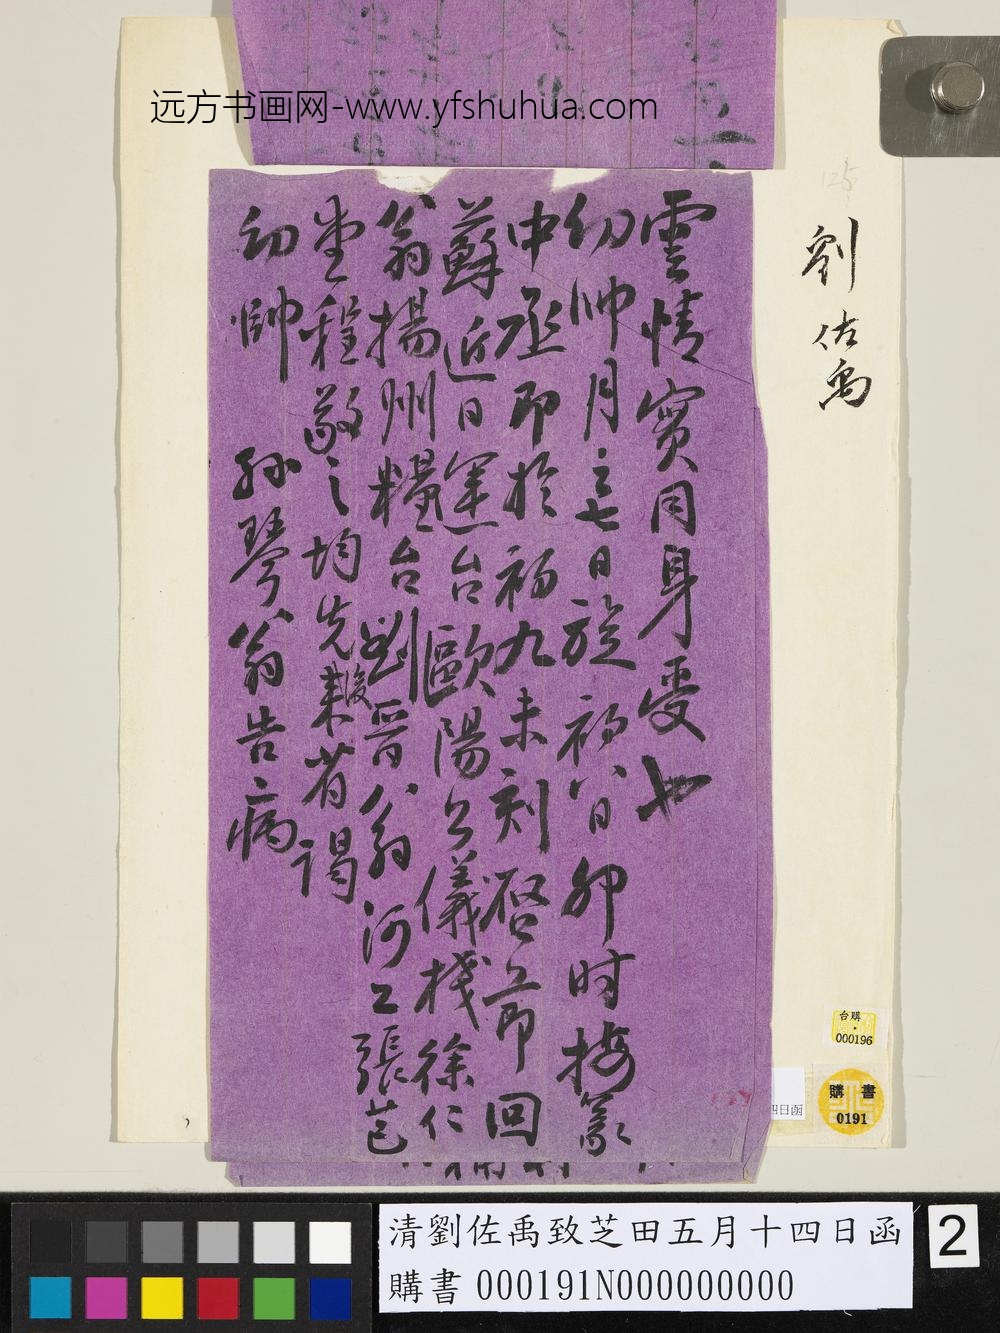 远方书画网-www.yfshuhua.com
125
劉佐禹
雲情實同身受也
幼帥月之七日旋初八日卯時接篆
中丞即於初九未刻啓節回
蘇近日運台歐陽公儀棧徐仁
翁揚州糧台劉晉翁河工張芑
堂程敬之均先後來省謁
幼帥 孫琴翁告病
四日函
台購
000196
購書
0191
清劉佐禹致芝田五月十四日函
購書 000191N000000000
2